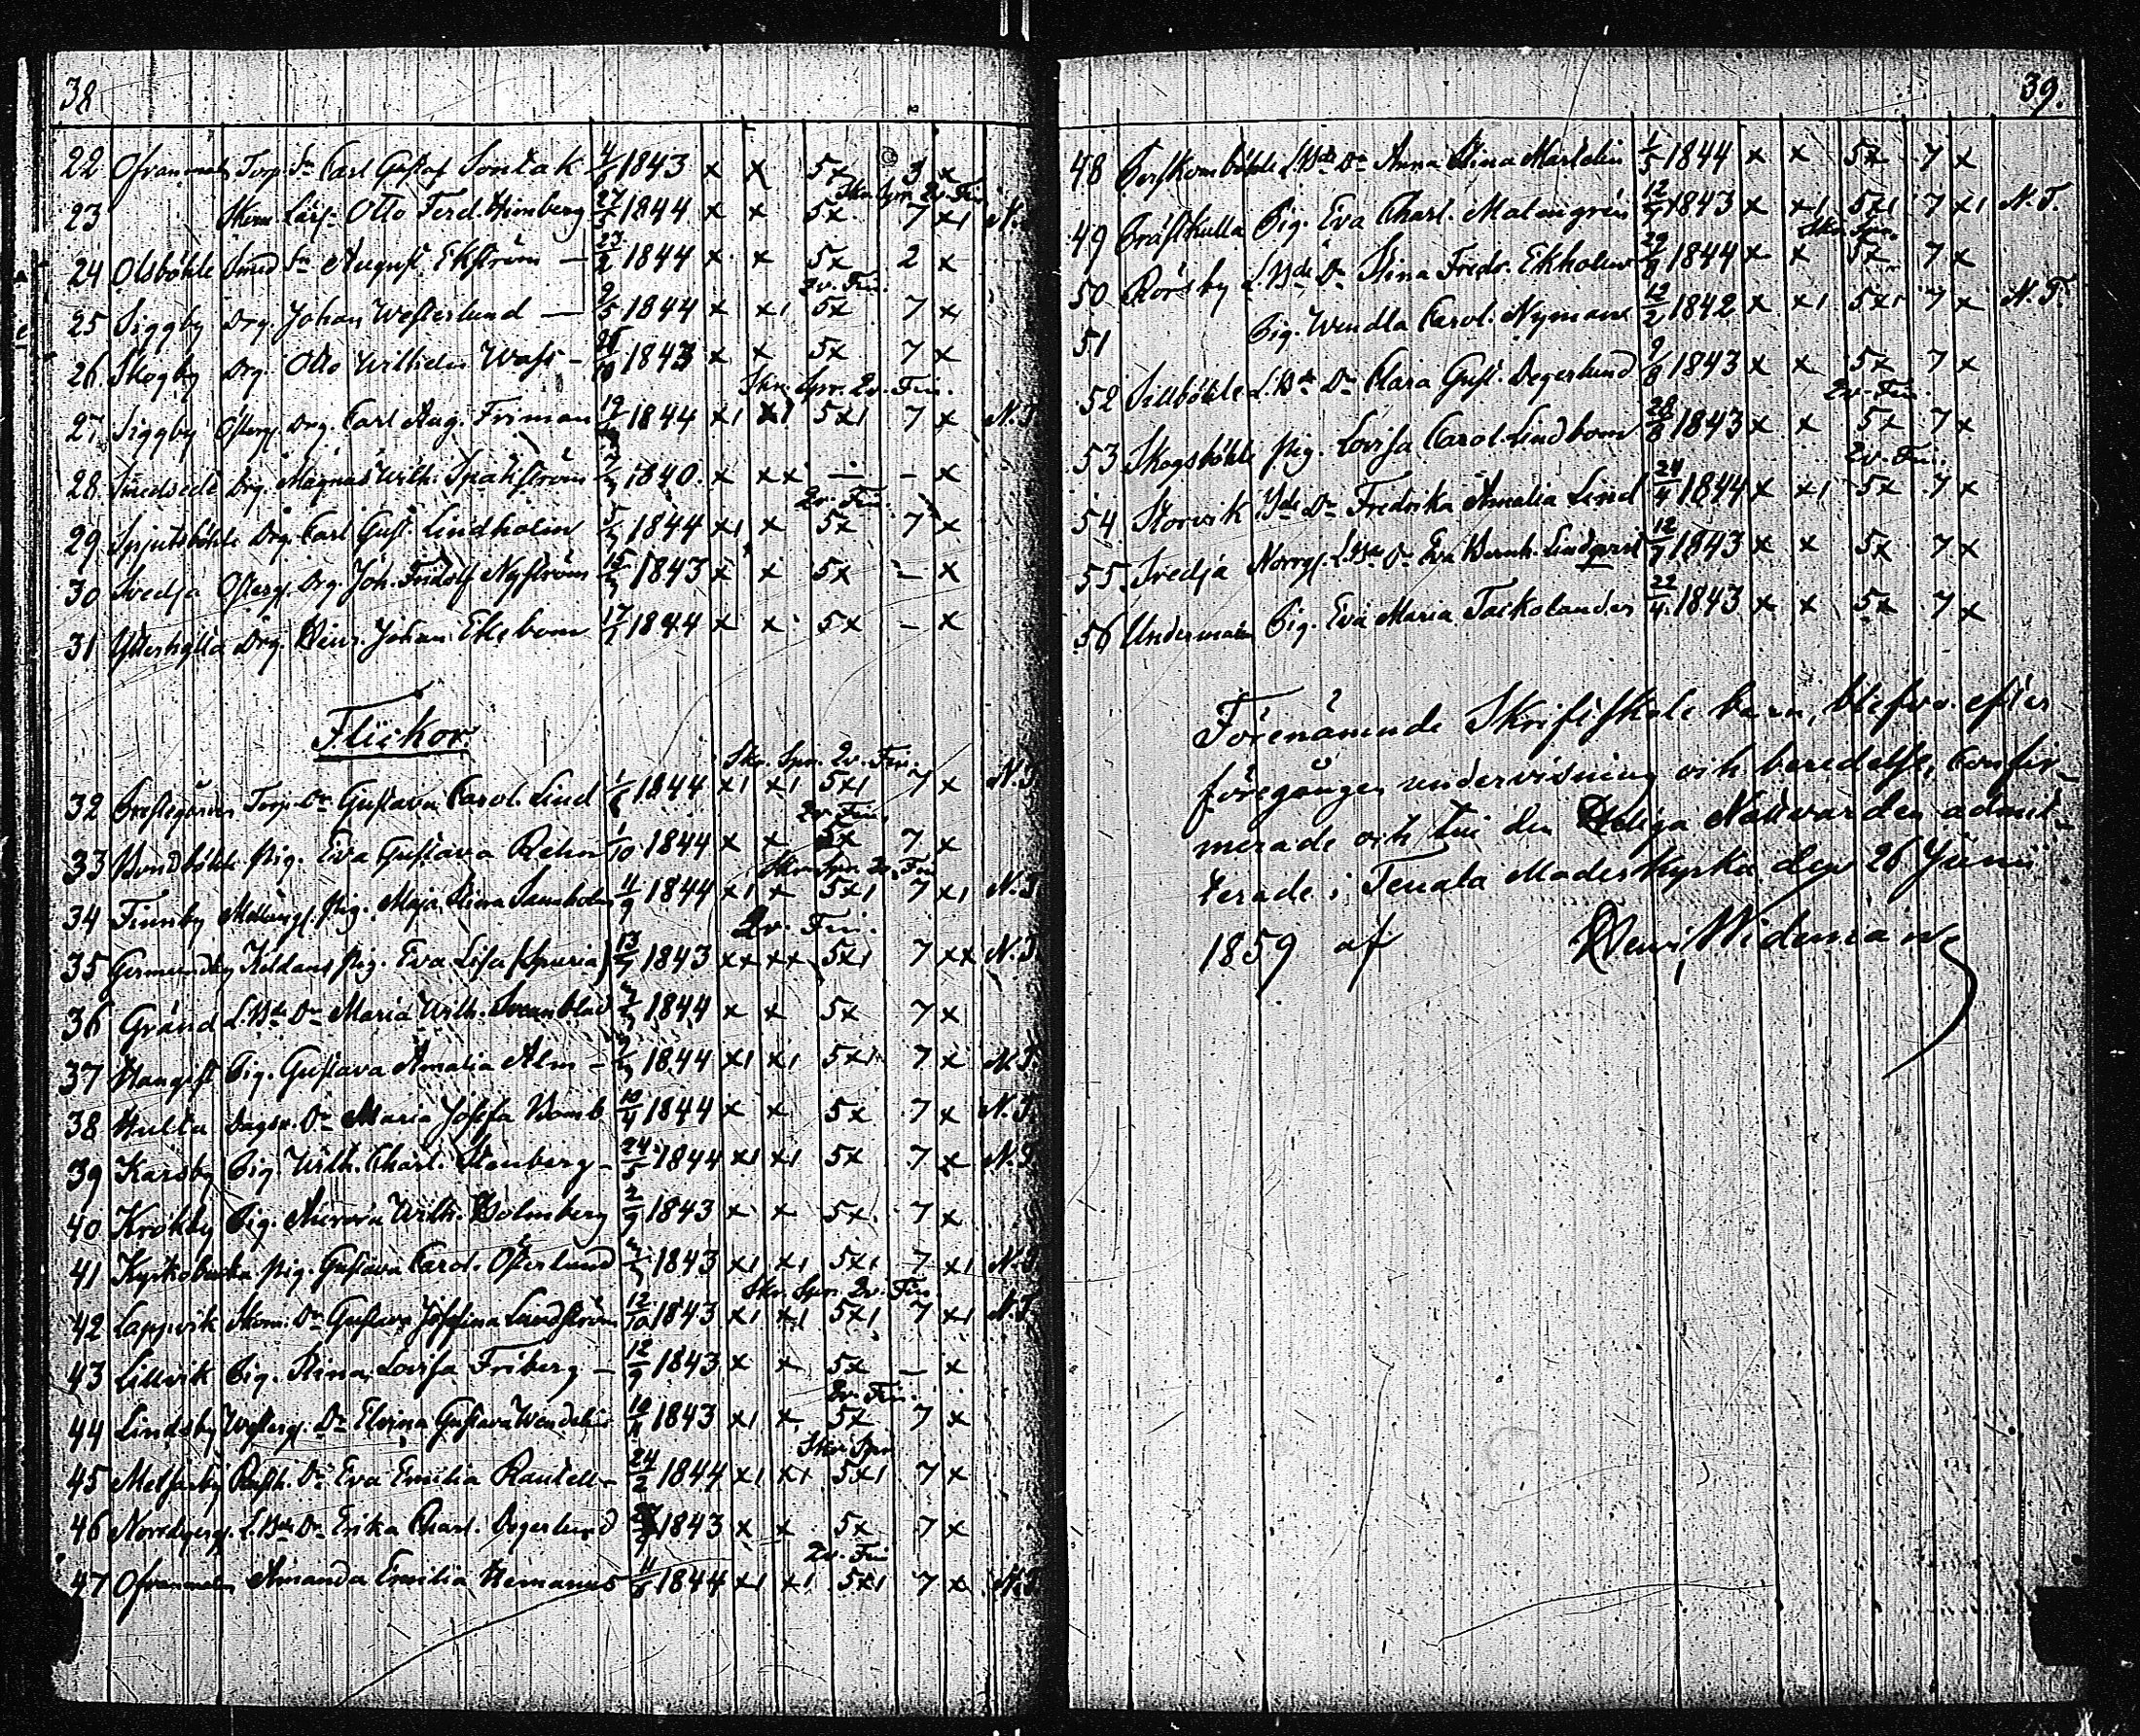 38
22 Ofvanmalm Torp. Sn Carl Gustaf Sontak 1843 x x 5x 3 x
Skr. Spr. Lv. Fin.
23 Skom. Lärl. Otto Ferd. Himberg 27/5 1844 x x 5x 7 x1 N.
24 Olsböhle Smed Sn August Ekström — 23/2 1844 x x 5x 2 x
Lv. Fin.
25 Siggby Drg. Johan Westerlund — 9/5 1844 x x1 5x 7 x
26 Skogby Drg. Otto Wilhelm Wass – 1843 x x 5x 7 x
Skr. Spr. Lv. Fin.
27 Siggby Österg. Drg. Carl Aug. Friman 1844 x1 x1 5x1 7 x N. T
28 Smedsede Drg. Magnus Wilh. Spakström 1840. x xx – – x
Lv. Fin.
29 Spjutsböhle Drg. Carl Gust. Lindholm 1844 x1 x 5x 7 x
30 Svedja Österg. Drg. Joh. Fridolf Nyström 1843 x x 5x – x
31 Drg. Henr. Johan Ekebom 17/1 1844 x x 5x – x
Flickor.
Skr. Spr. Lv. Fin.
32 Prestegården Torp. Dr Gustava Carol. Lind 1844 x1 x1 5x1 7 x N. T
Lv. Fin.
33 Bondböhle Pig. Eva Gustava Rehn 1/10 1844 x x 5x 7 x
Skr. Spr. Lv. Fin
34 Finnby Mellang. Pig. Maja Stina Samholm 11/9 1844 x1 x 5x1 7 x1 N. T
Lv. Fin.
35 Germundby Pig. Eva Lisa (Spuria) 13/7 1843 xx xx 5x1 7 xx N. T.
36 Gränd L.Bde Dr Maria Wilh. Svanblad 1844 x x 5x 7 x
37 Hangist Pig. Gustava Amalia Alm – 1844 x1 x1 5x1 7 x N. T.
38 Hulta Dagsv. Dr Maria Josefa Bomb 1844 x x 5x 7 x N. T.
39 Karsby Pig. Wilh. Charl. Stenberg – 24/5 1844 x1 x1 5x 7 x N. T.
40 Krokby Pig. Aurora Wilh. Holmberg 2/9 1843 x x 5x 7 x
41 Kyrkobacka Pig. Gustava Carol. Österlund 1843 x1 x1 5x1 7 x1 N. T.
Skr. Spr. Lv. Fin.
42 Lappvik Skom. Dr Gustava Josefina Lundström 12/10 1843 x1 x1 5x1 7 x1 N. T.
43 Lillvik Pig. Stina Lovisa Friberg – 12/9 1843 x x 5x – x
Lv. Fin.
44 Lindsby Westerg. Dr Elvina Gustava Wendelin 1843 x1 x 5x 7 x
Skr. Spr
45 Melsarby Rusth. Dr Eva Emilia Rantell – 24/2 1844 x1 x1 5x1 7 x
46 Norrbyerg. L.Bde Dr Erika Charl. Degerlund 1843 x x 5x 7 x
Lv. Fin
47 Ofvanmalm Amanda Emilia Hemanus 11/6 1844 x1 x1 5x1 7 x N. T.
39.
48 L.Bde Dr Anna Stina Martelin 1/5 1844 x x 5x 7 x
49 Präskulla Pig. Eva Charl. Malmgrén 1843 x x1 5x1 7 x1 N. T.
Skr. Spr.
50 Rörsby L.Bde Dr Stina Fredr. Ekholm 1844 x x 5x 7 x
51 Pig. Wendla Carol. Nyman 12/2 1842 x x1 5x1 7 x N. T.
52 Sillböhle L.Bde Dr Clara Gust. Degerlund 9/8 1843 x x 5x 7 x
Lv. Fin.
53 Skogsböhle Pig. Lovisa Carol. Lindbom 28/8 1843 x x 5x 7 x
Lv. Fin.
54 Storvik Bde Dr Fredrika Amalia Lind 24/4 1844 x x1 5x 7 x
55. Svedja Norrg. L.Bde Dr Eva Vernh. Lindqvist 12/7 1843 x x 5x 7 x
56 Undermalm Pig. Eva Maria Taikolander 22/4 1843 x x 5x 7 x
Förenämnde Skriftskole barn, blefvo efter
föregången undervisning och beredelse, confir-
merade och till den Heliga Nattvarden admit-
terade i Tenala Moderkyrka den 26 Junii
1859 af Henr. Wideman